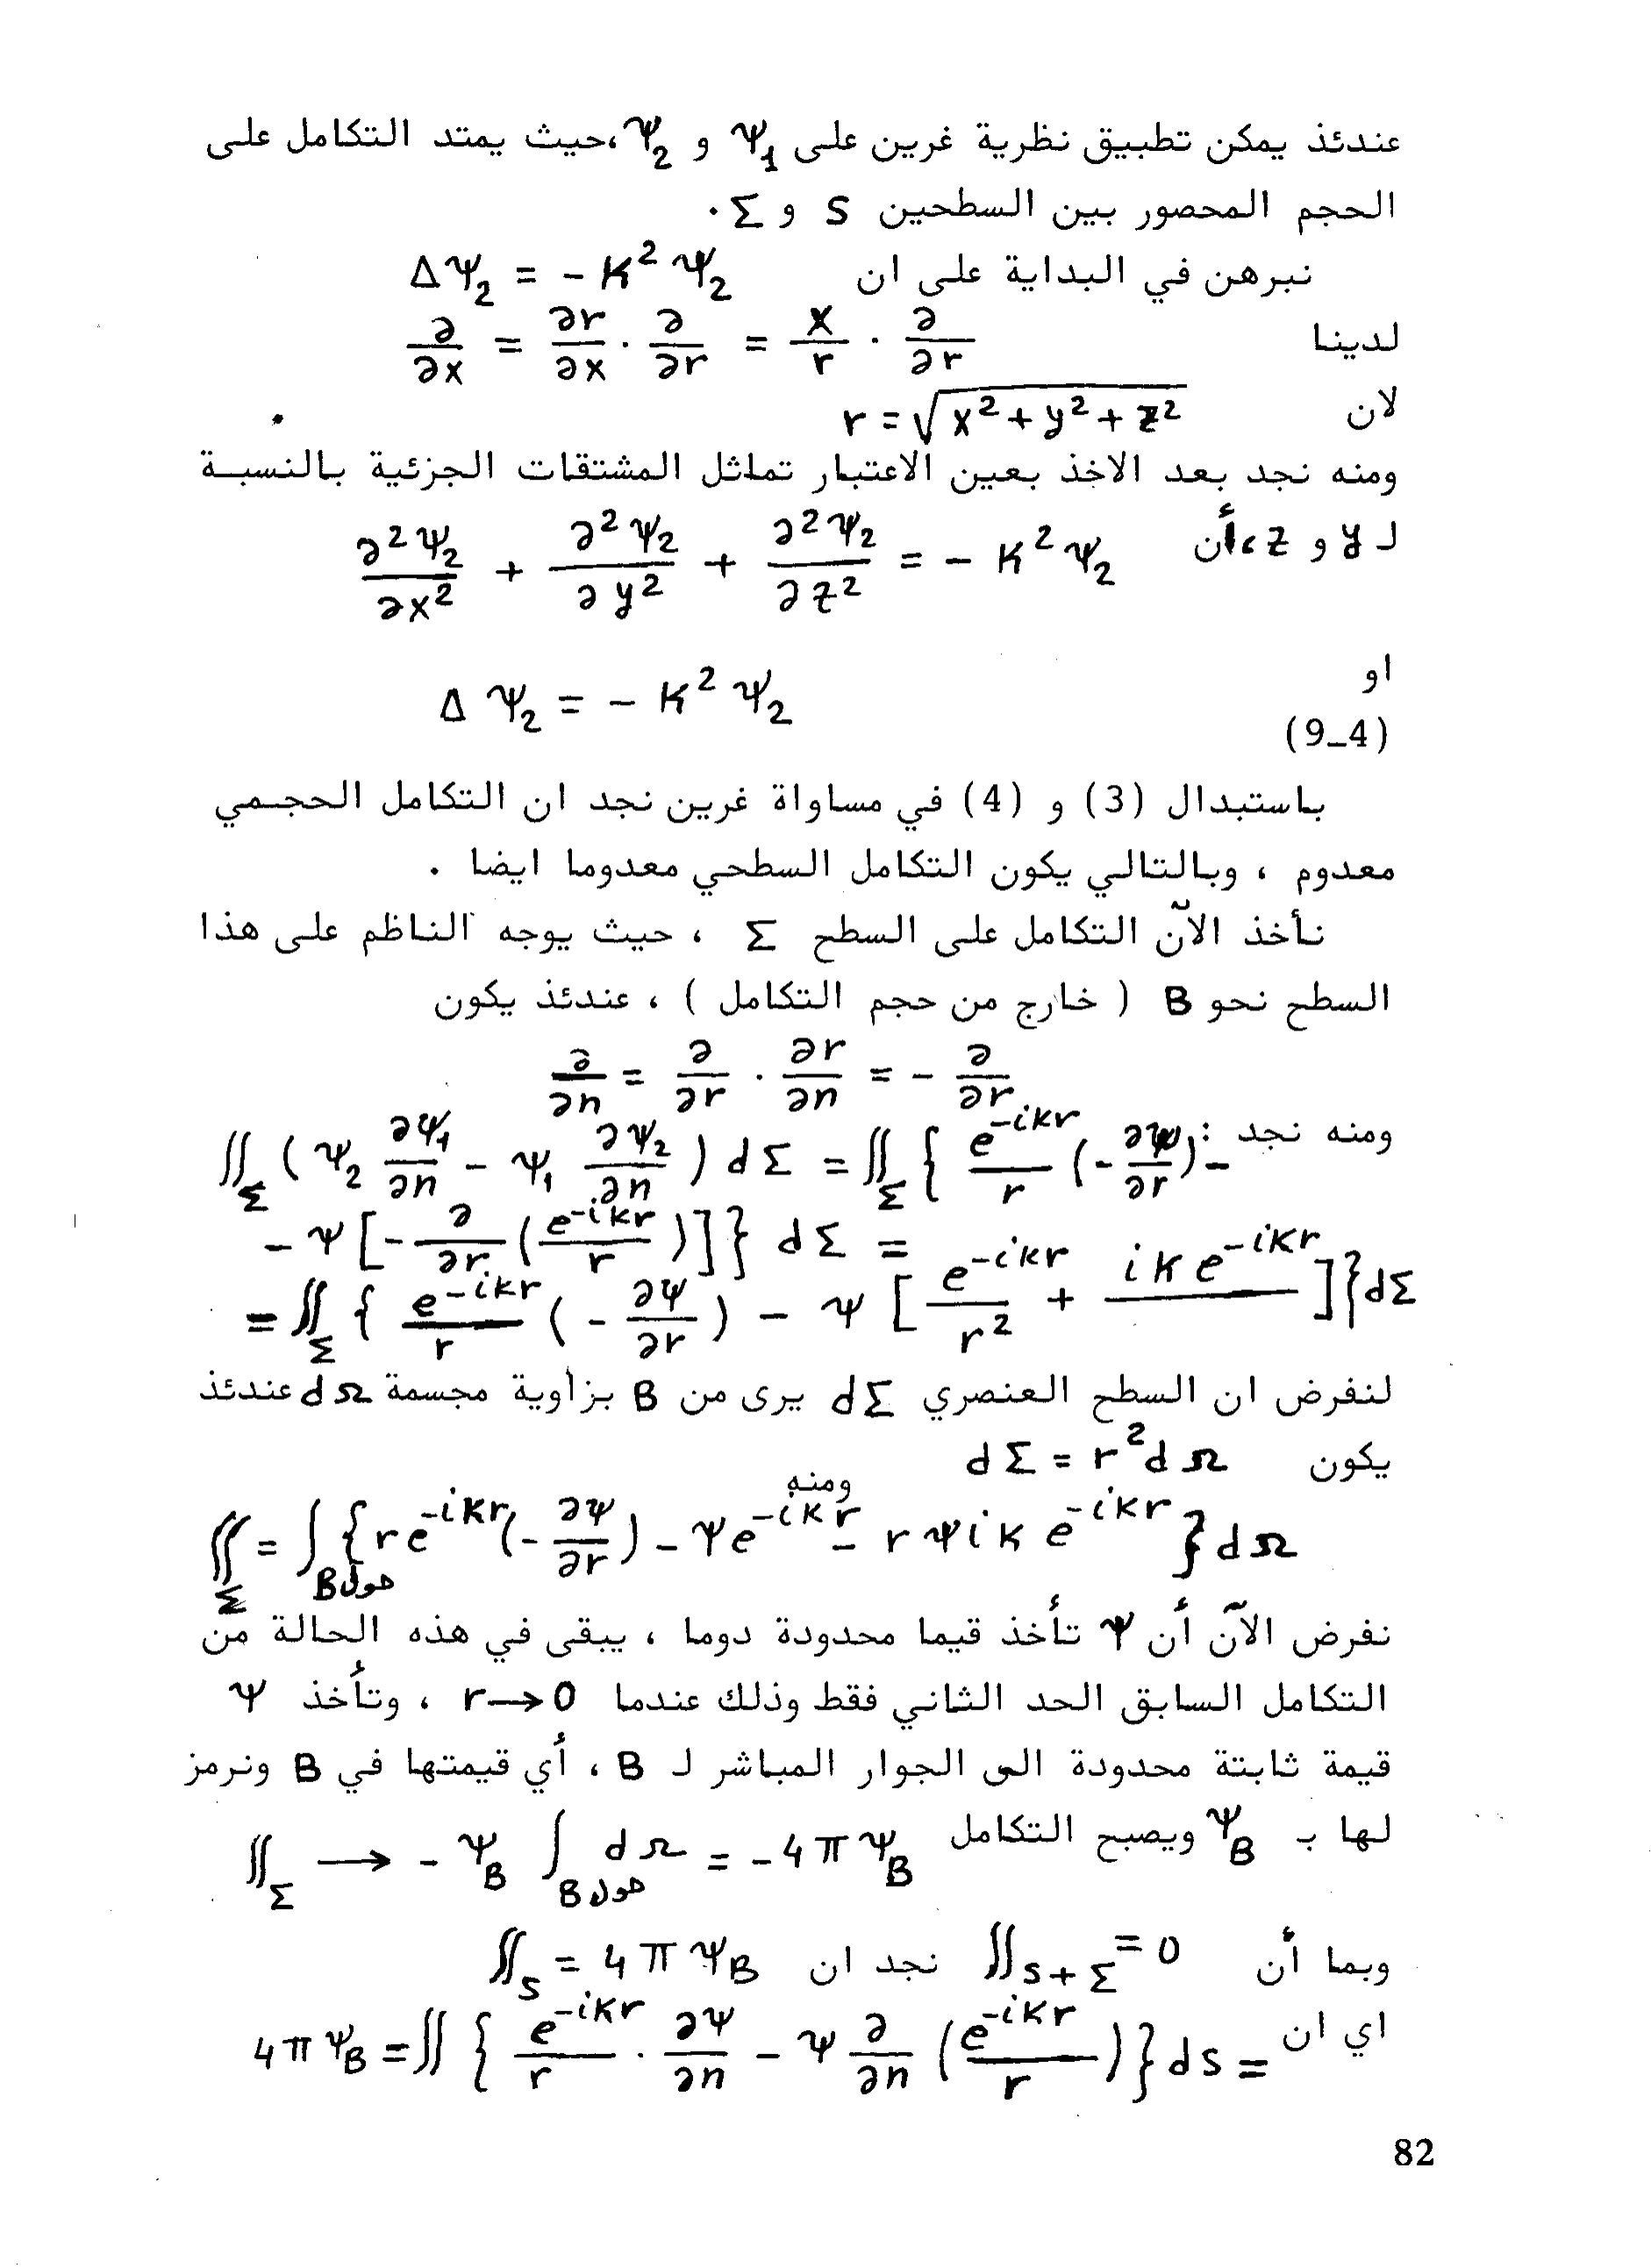 عندئذ يمكن تطبيق نظرية غرين على Ψ₁ و Ψ₂،حيث يمتد التكامل على
الحجم المحصور بين السطحين S و Σ .
نبرهن في البداية على ان ΔΨ₂ = - K² Ψ₂
لدينا ∂/∂x = ∂r/∂x · ∂/∂r = x/r · ∂/∂r
لان r = √(x² + y² + z²)
ومنه نجد بعد الاخذ بعين الاعتبار تماثل المشتقات الجزئية بالنسبة
لـ y و z،أن ∂²Ψ₂/∂x² + ∂²Ψ₂/∂y² + ∂²Ψ₂/∂z² = - K² Ψ₂
او
Δ Ψ₂ = - K² Ψ₂
(9_4)
باستبدال (3) و (4) في مساواة غرين نجد ان التكامل الحجمي
معدوم ، وبالتالي يكون التكامل السطحي معدوما ايضا .
نأخذ الآن التكامل على السطح Σ ، حيث يوجه الناظم على هذا
السطح نحو B ( خارج من حجم التكامل ) ، عندئذ يكون
∂/∂n = ∂/∂r · ∂r/∂n = - ∂/∂r
ومنه نجد :
∬_Σ ( Ψ₂ ∂Ψ₁/∂n - Ψ₁ ∂Ψ₂/∂n ) dΣ = ∬_Σ { e^{-ikr}/r (- ∂Ψ/∂r) -
- Ψ [- ∂/∂r (e^{-ikr}/r)]} dΣ =
= ∬_Σ { e^{-ikr}/r (- ∂Ψ/∂r) - Ψ [ e^{-ikr}/r² + i k e^{-ikr}/ ]} dΣ
لنفرض ان السطح العنصري dΣ يرى من B بزاوية مجسمة dΩ عندئذ
يكون dΣ = r² dΩ
ومنه
∬_Σ = ∫_{حول B} { r e^{-ikr} (- ∂Ψ/∂r) - Ψ e^{-ikr} - r Ψ i k e^{-ikr} } dΩ
نفرض الآن أن Ψ تأخذ قيما محدودة دوما ، يبقى في هذه الحالة من
التكامل السابق الحد الثاني فقط وذلك عندما r → 0 ، وتأخذ Ψ
قيمة ثابتة محدودة الى الجوار المباشر لـ B ، أي قيمتها في B ونرمز
لها بـ Ψ_B ويصبح التكامل ∬_Σ → - Ψ_B ∫_{حول B} dΩ = - 4π Ψ_B
وبما أن ∬_{S+Σ} = 0 نجد ان ∬_S = 4π Ψ_B
اي ان 4π Ψ_B = ∬ { e^{-ikr}/r · ∂Ψ/∂n - Ψ ∂/∂n (e^{-ikr}/r) } ds =
82